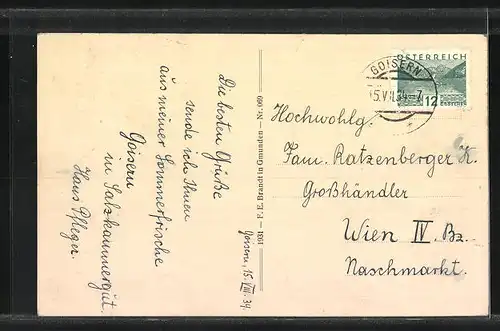 Die besten Grüße
sende ich Ihnen
aus meiner Sommerfrische
Goisern
im Salzkammergut.
Hans Pfleger.
Goisern, 15. VIII. 34.
1931 — F. E. Brandt in Gmunden — Nr. 660
GOISERN
ÖSTERREICH
12
Hochwohlg.
Fam. Ratzenberger K.
Großhändler
Wien IV. Bz.
Naschmarkt.